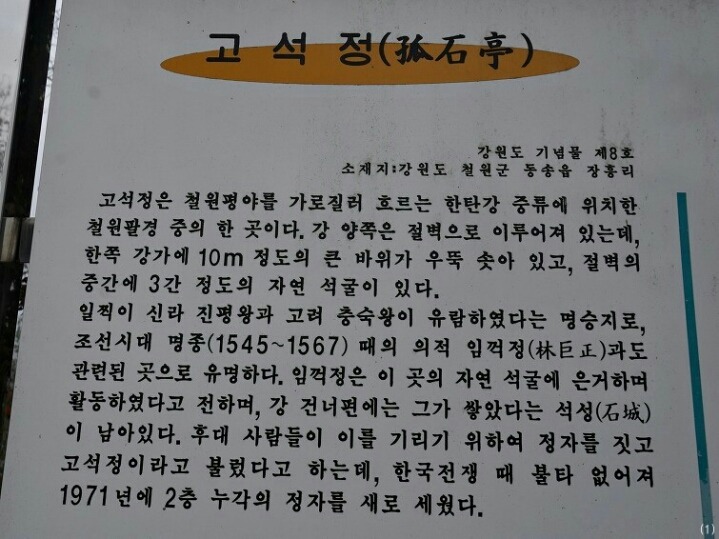 고 석 정(孤石亭)
강원도 기념물 제8호
소재지:강원도 철원군 동송읍 장흥리
고석정은 철원평야를 가로질러 흐르는 한탄강 중류에 위치한
철원팔경 중의 한 곳이다. 강 양쪽은 절벽으로 이루어져 있는데,
한쪽 강가에 10m 정도의 큰 바위가 우뚝 솟아 있고, 절벽의
중간에 3간 정도의 자연 석굴이 있다.
일찍이 신라 진평왕과 고려 충숙왕이 유람하였다는 명승지로,
조선시대 명종(1545~1567) 때의 의적 임꺽정(林巨正)과도
관련된 곳으로 유명하다. 임꺽정은 이 곳의 자연 석굴에 은거하며
활동하였다고 전하며, 강 건너편에는 그가 쌓았다는 석성(石城)
이 남아있다. 후대 사람들이 이를 기리기 위하여 정자를 짓고
고석정이라고 불렀다고 하는데, 한국전쟁 때 불타 없어져
1971년에 2층 누각의 정자를 새로 세웠다.
(1)